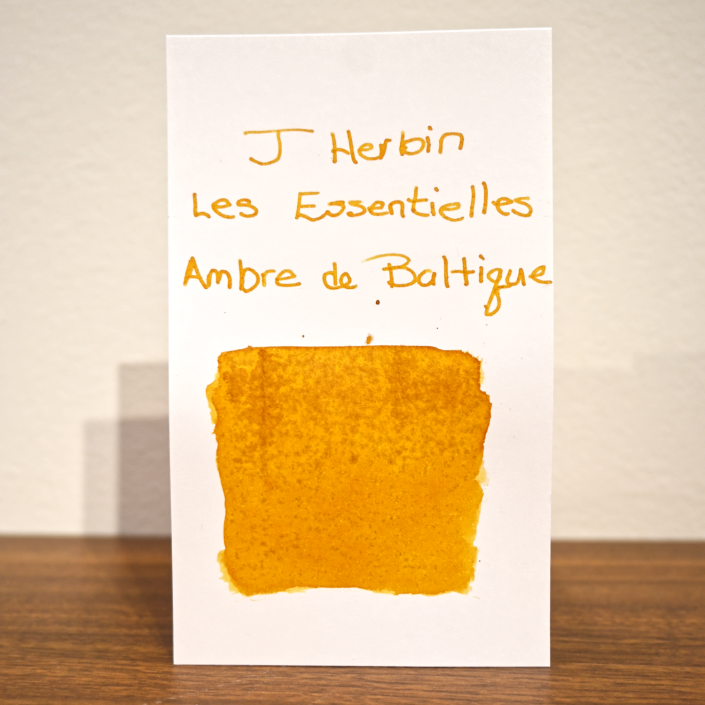 J Herbin
Les Essentielles
Ambre de Baltique